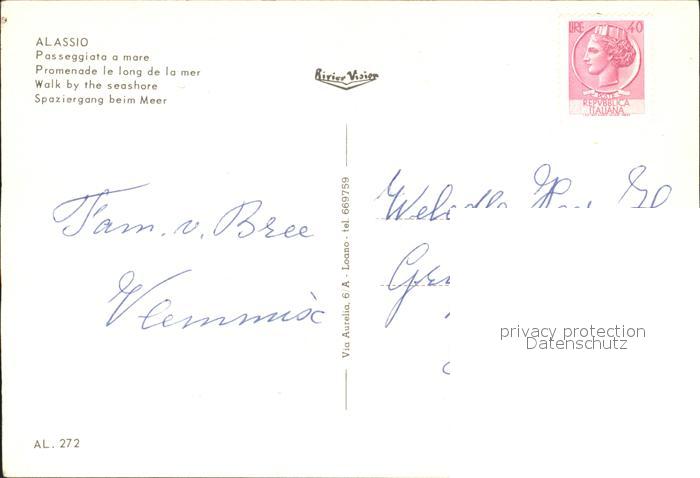 ALASSIO
Passeggiata a mare
Promenade le long de la mer
Walk by the seashore
Spaziergang beim Meer
Rivier Vision
LIRE 40
POSTE
REPVBBLICA
ITALIANA
Fam. v. Bree
Vlemmix
Via Aurelia, 6/A - Loano - tel. 669759
privacy protection
Datenschutz
AL. 272